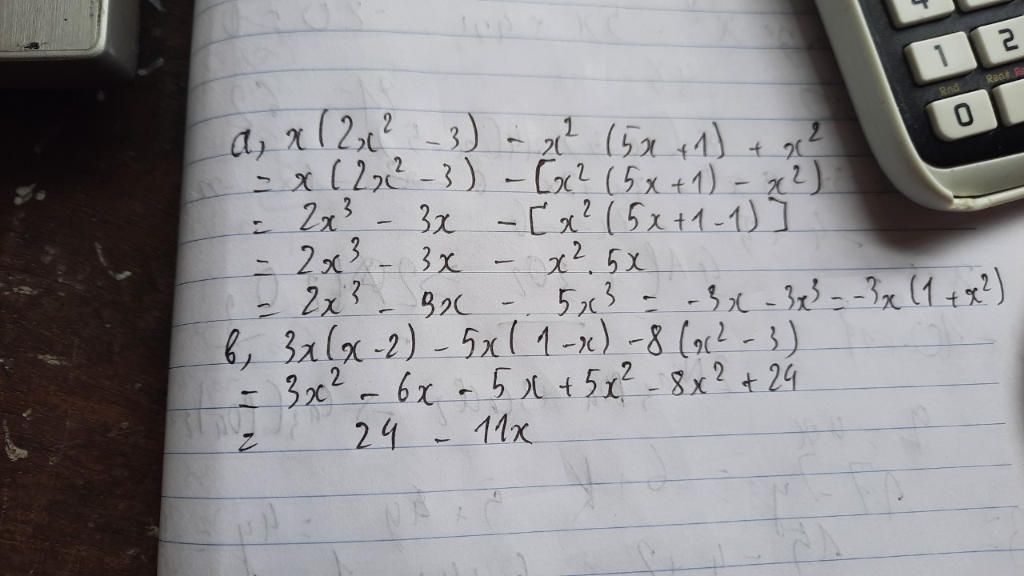 a, x(2x² - 3) - x² (5x + 1) + x²
= x(2x² - 3) - [x² (5x + 1) - x²)
= 2x³ - 3x - [x² (5x + 1 - 1)]
= 2x³ - 3x - x². 5x
= 2x³ - 3x - 5x³ = -3x - 3x³ = -3x (1 + x²)
b, 3x(x - 2) - 5x(1 - x) - 8(x² - 3)
= 3x² - 6x - 5x + 5x² - 8x² + 24
= 24 - 11x
4
1 2
Rnd Ran#
0